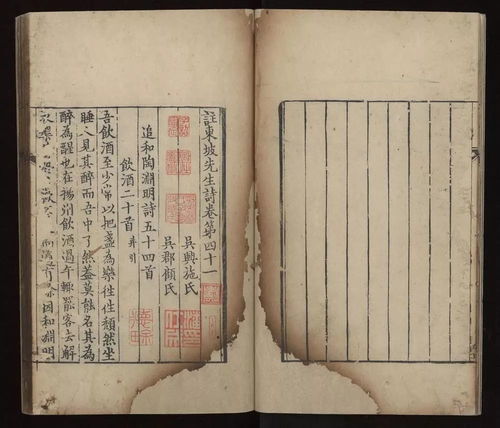 註東坡先生詩卷第四十一
吳興施氏
吳郡顧氏
追和陶淵明詩五十四首
飲酒二十首 并引
吾飲酒至少常以把盞為樂往往頹然坐
睡人見其醉而吾中了然蓋莫能名其為
醉為醒也在揚州飲酒過午輒罷客去解
因和淵明